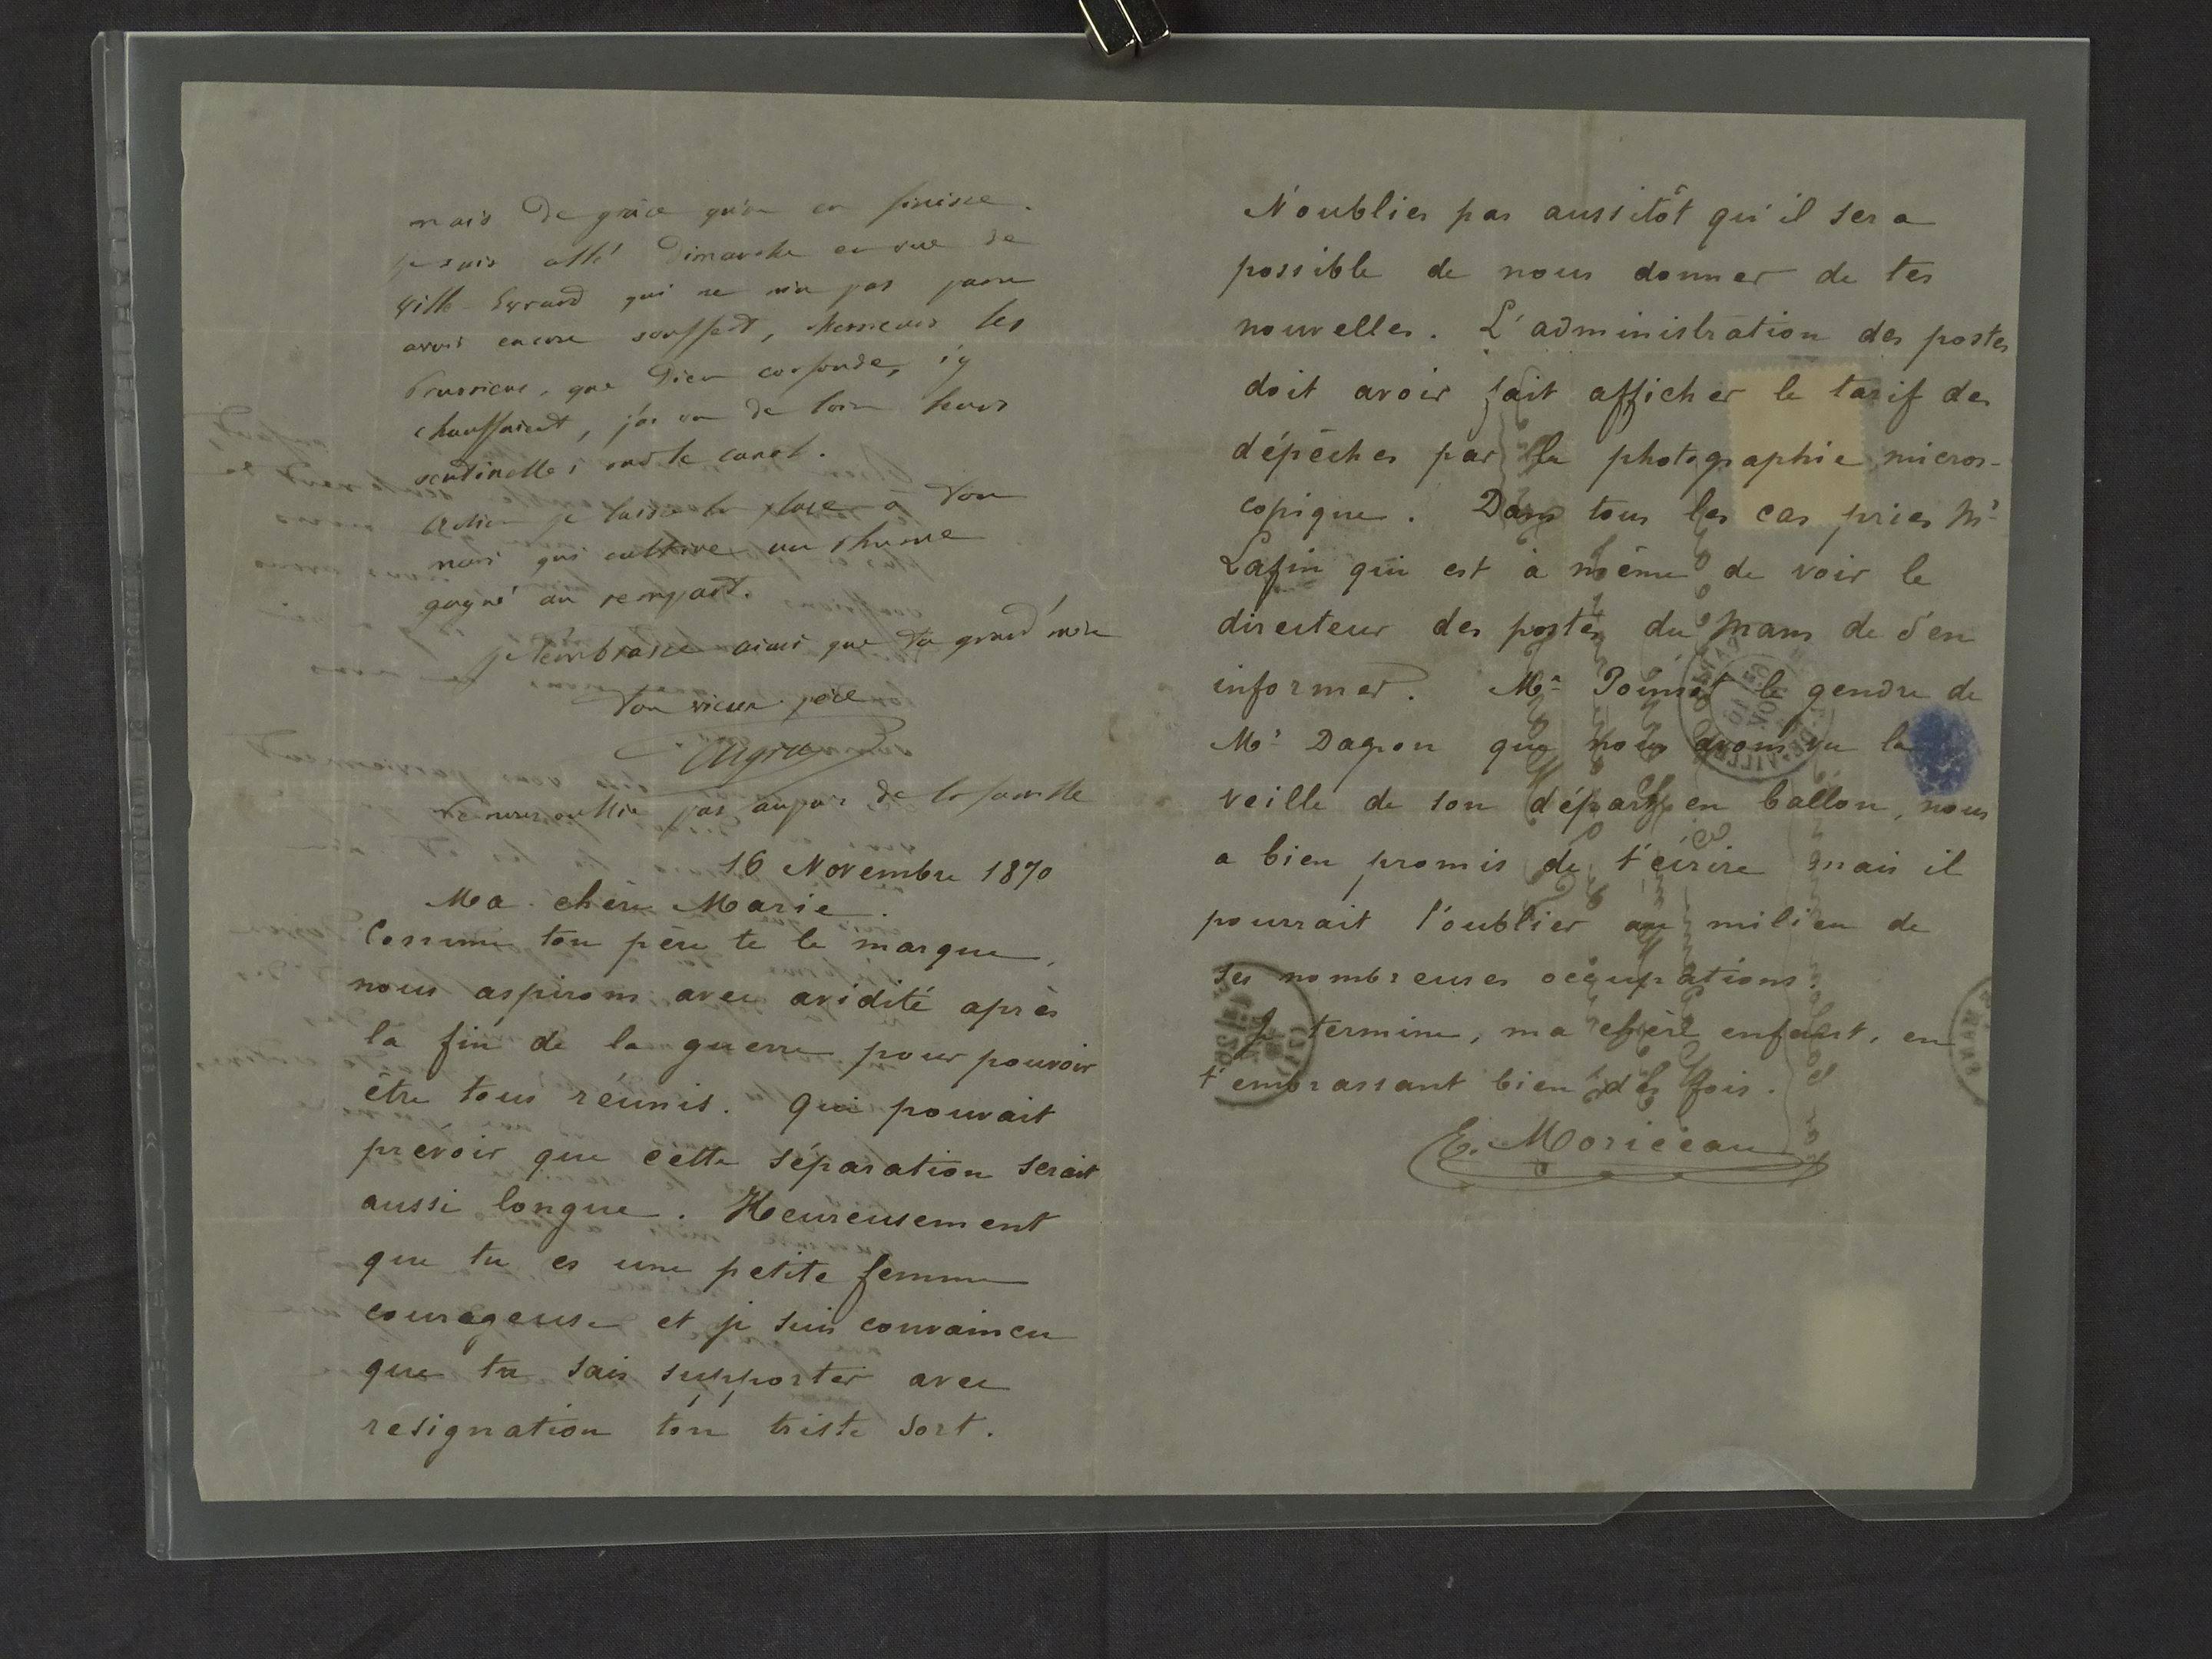 mais de grâce qu'on en finisse.
je suis allé Dimanche en vue de
Ville-Evrard qui ne m'a pas paru
avoir encore souffert, les
Prussiens, que Dieu confonde, s'y
chauffaient, j'ai vu de loin leurs
sentinelles sur le canal.
Adieu je laisse la place à ton
mari qui cultive un rhume
gagné au rempart.
je t'embrasse ainsi que ta grand'mère
Ton vieux père
Ne nous oublie pas auprès de la famille
16 Novembre 1870
Ma chère Marie.
Comme ton père te le marque,
nous aspirons avec avidité après
la fin de la guerre pour pouvoir
être tous réunis. Qui pouvait
prevoir que cette séparation serait
aussi longue. Heureusement
que tu es une petite femme
courageuse et je suis convaincu
que tu sais supporter avec
resignation ton triste sort.
N'oublies pas aussitôt qu'il sera
possible de nous donner de tes
nouvelles. L'administration des postes
doit avoir fait afficher le tarif des
dépêches par la photographie micros-
copique. Dans tous les cas pries Mr
Lafin qui est à même de voir le
directeur des postes du Mans de s'en
informer. Mr Poinsot le gendre de
Mr Dagron que nous avons vu la
veille de son départ en ballon, nous
a bien promis de t'écrire mais il
pourrait l'oublier au milieu de
ses nombreuses occupations.
Je termine, ma chère enfant, en
t'embrassant bien des fois.
E. Moriceau